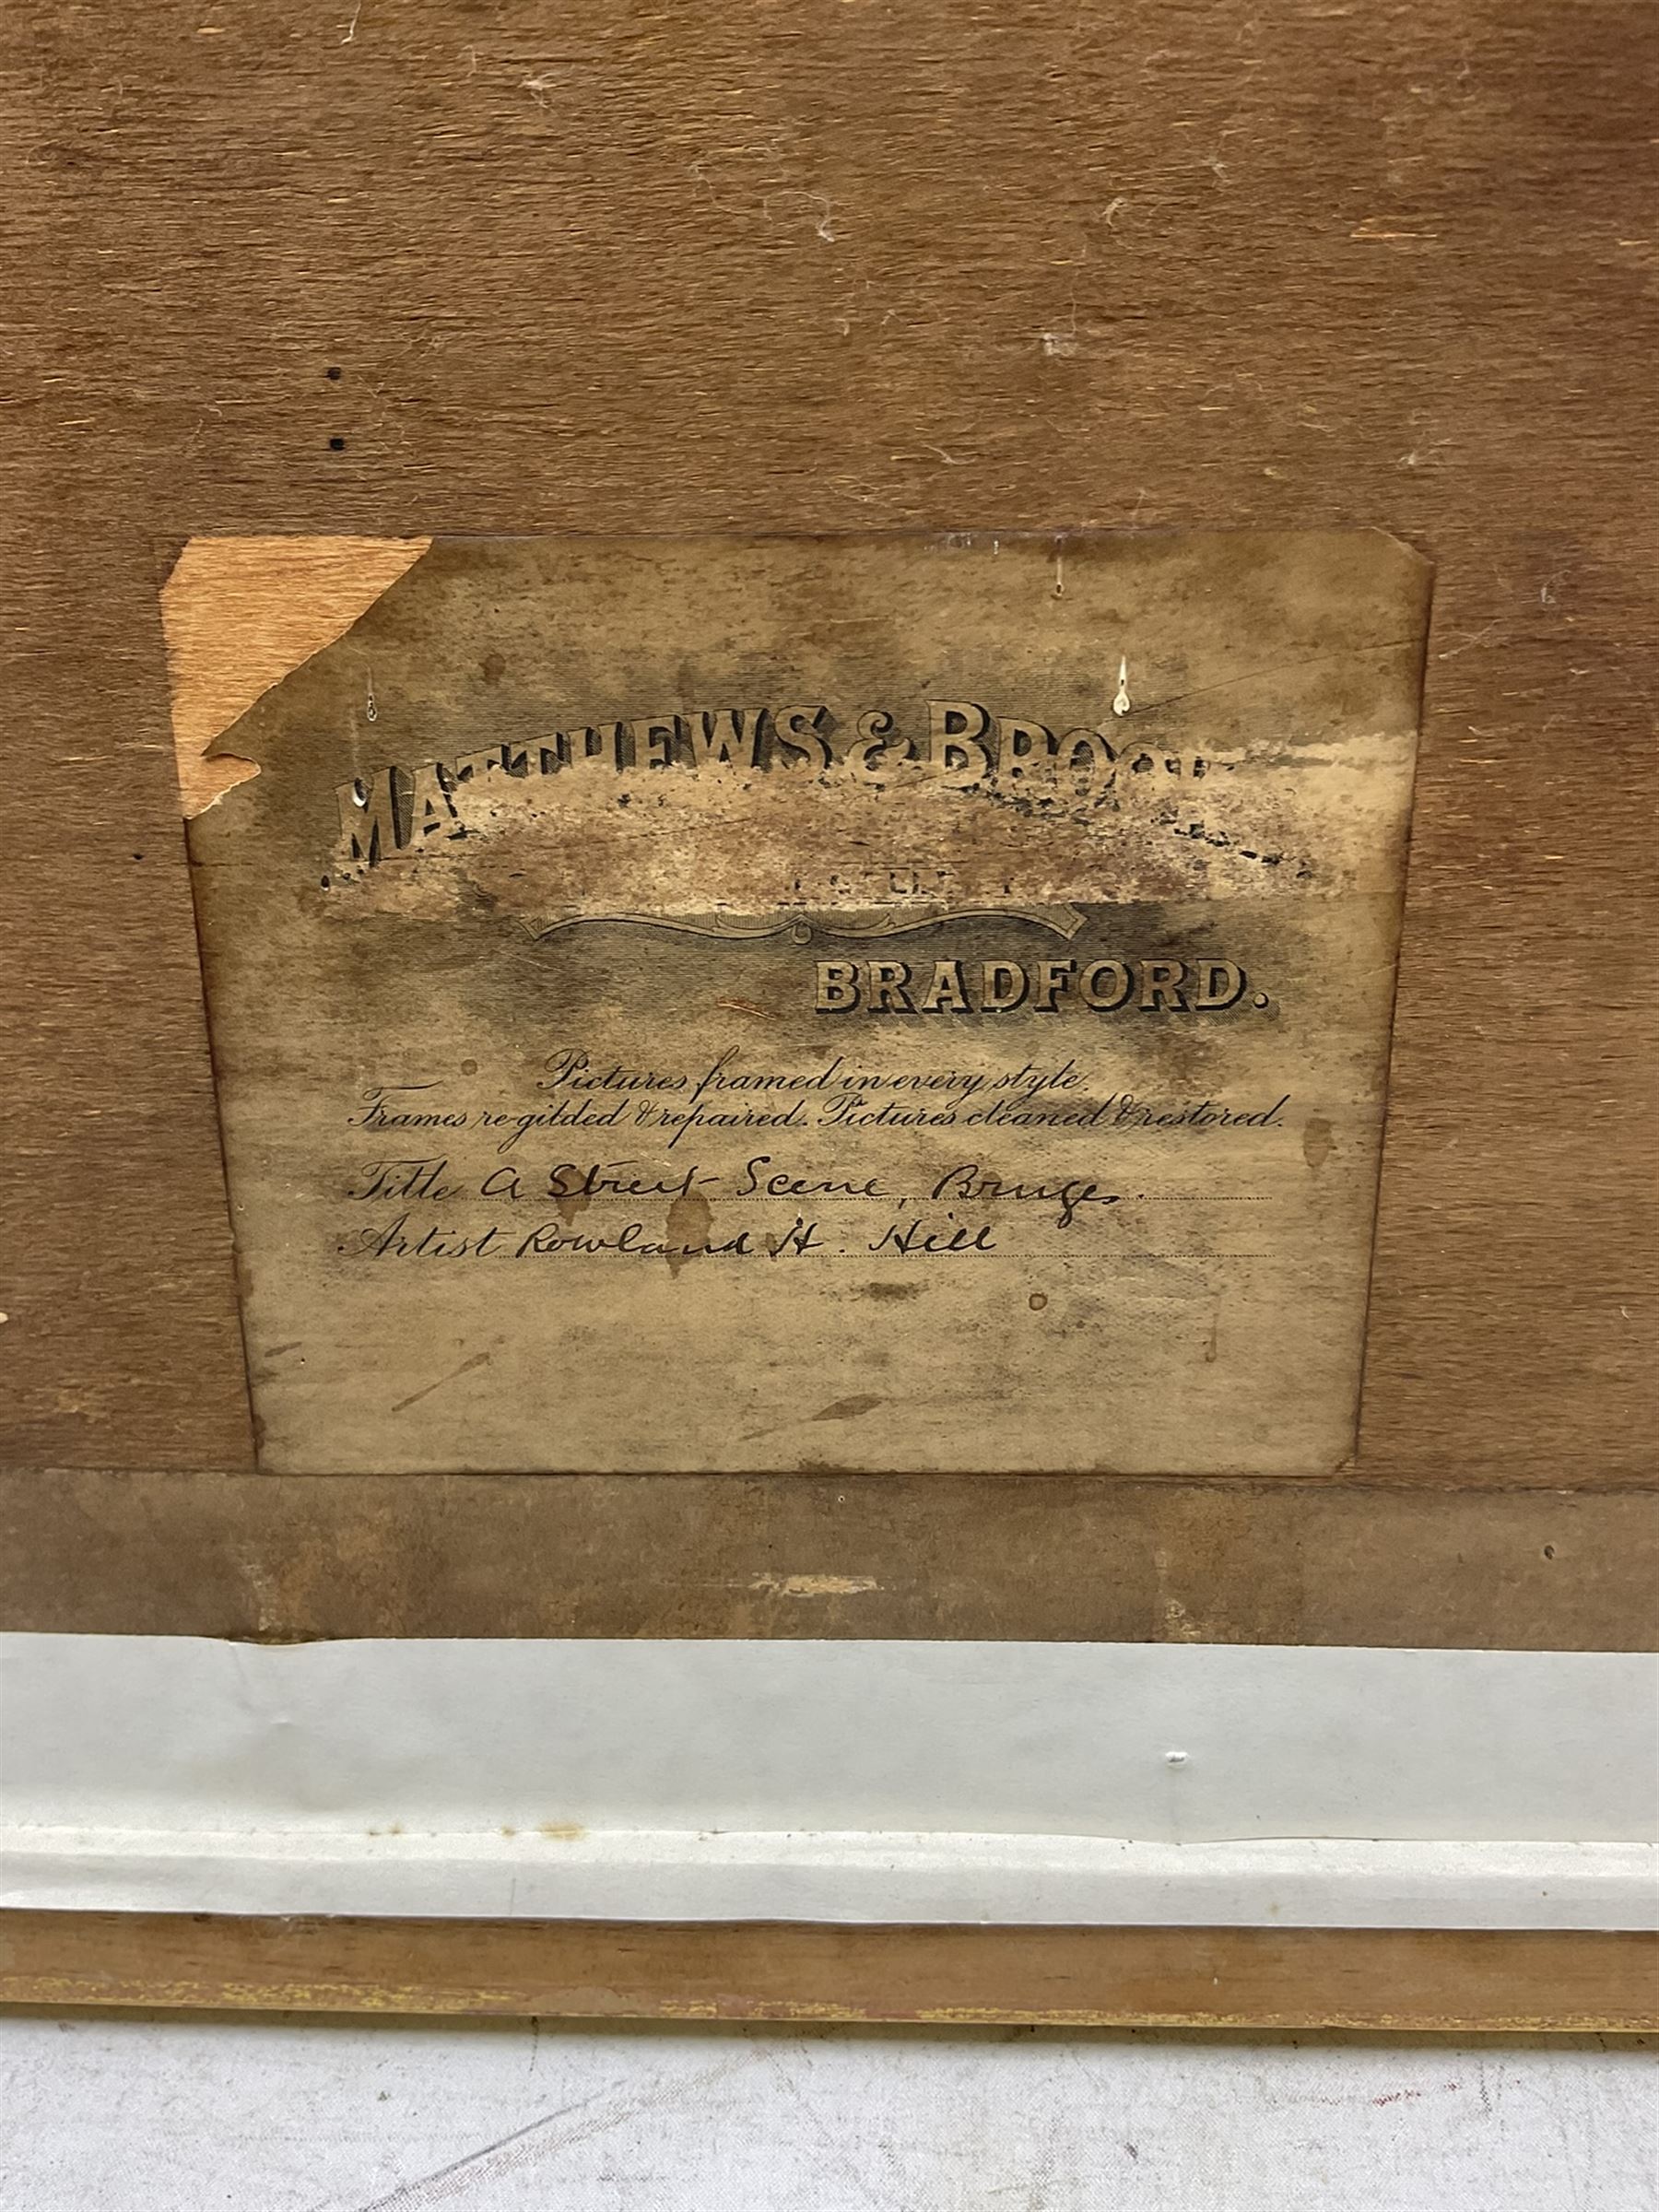 MATTHEWS & BROOKE
BRADFORD.
Pictures framed in every style.
Frames re-gilded & repaired. Pictures cleaned & restored.
Title A Street Scene, Bruges.
Artist Rowland H. Hill